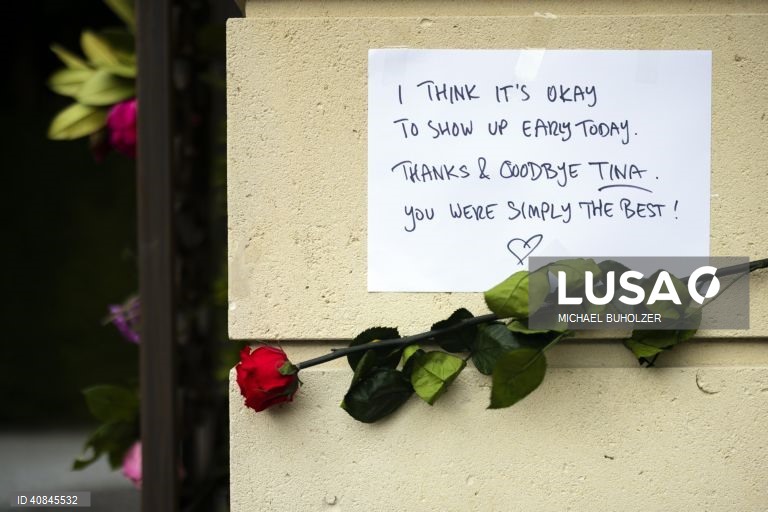 I THINK IT'S OKAY
TO SHOW UP EARLY TODAY.
THANKS & GOODBYE TINA.
YOU WERE SIMPLY THE BEST!
LUSA
MICHAEL BUHOLZER
ID 40845532